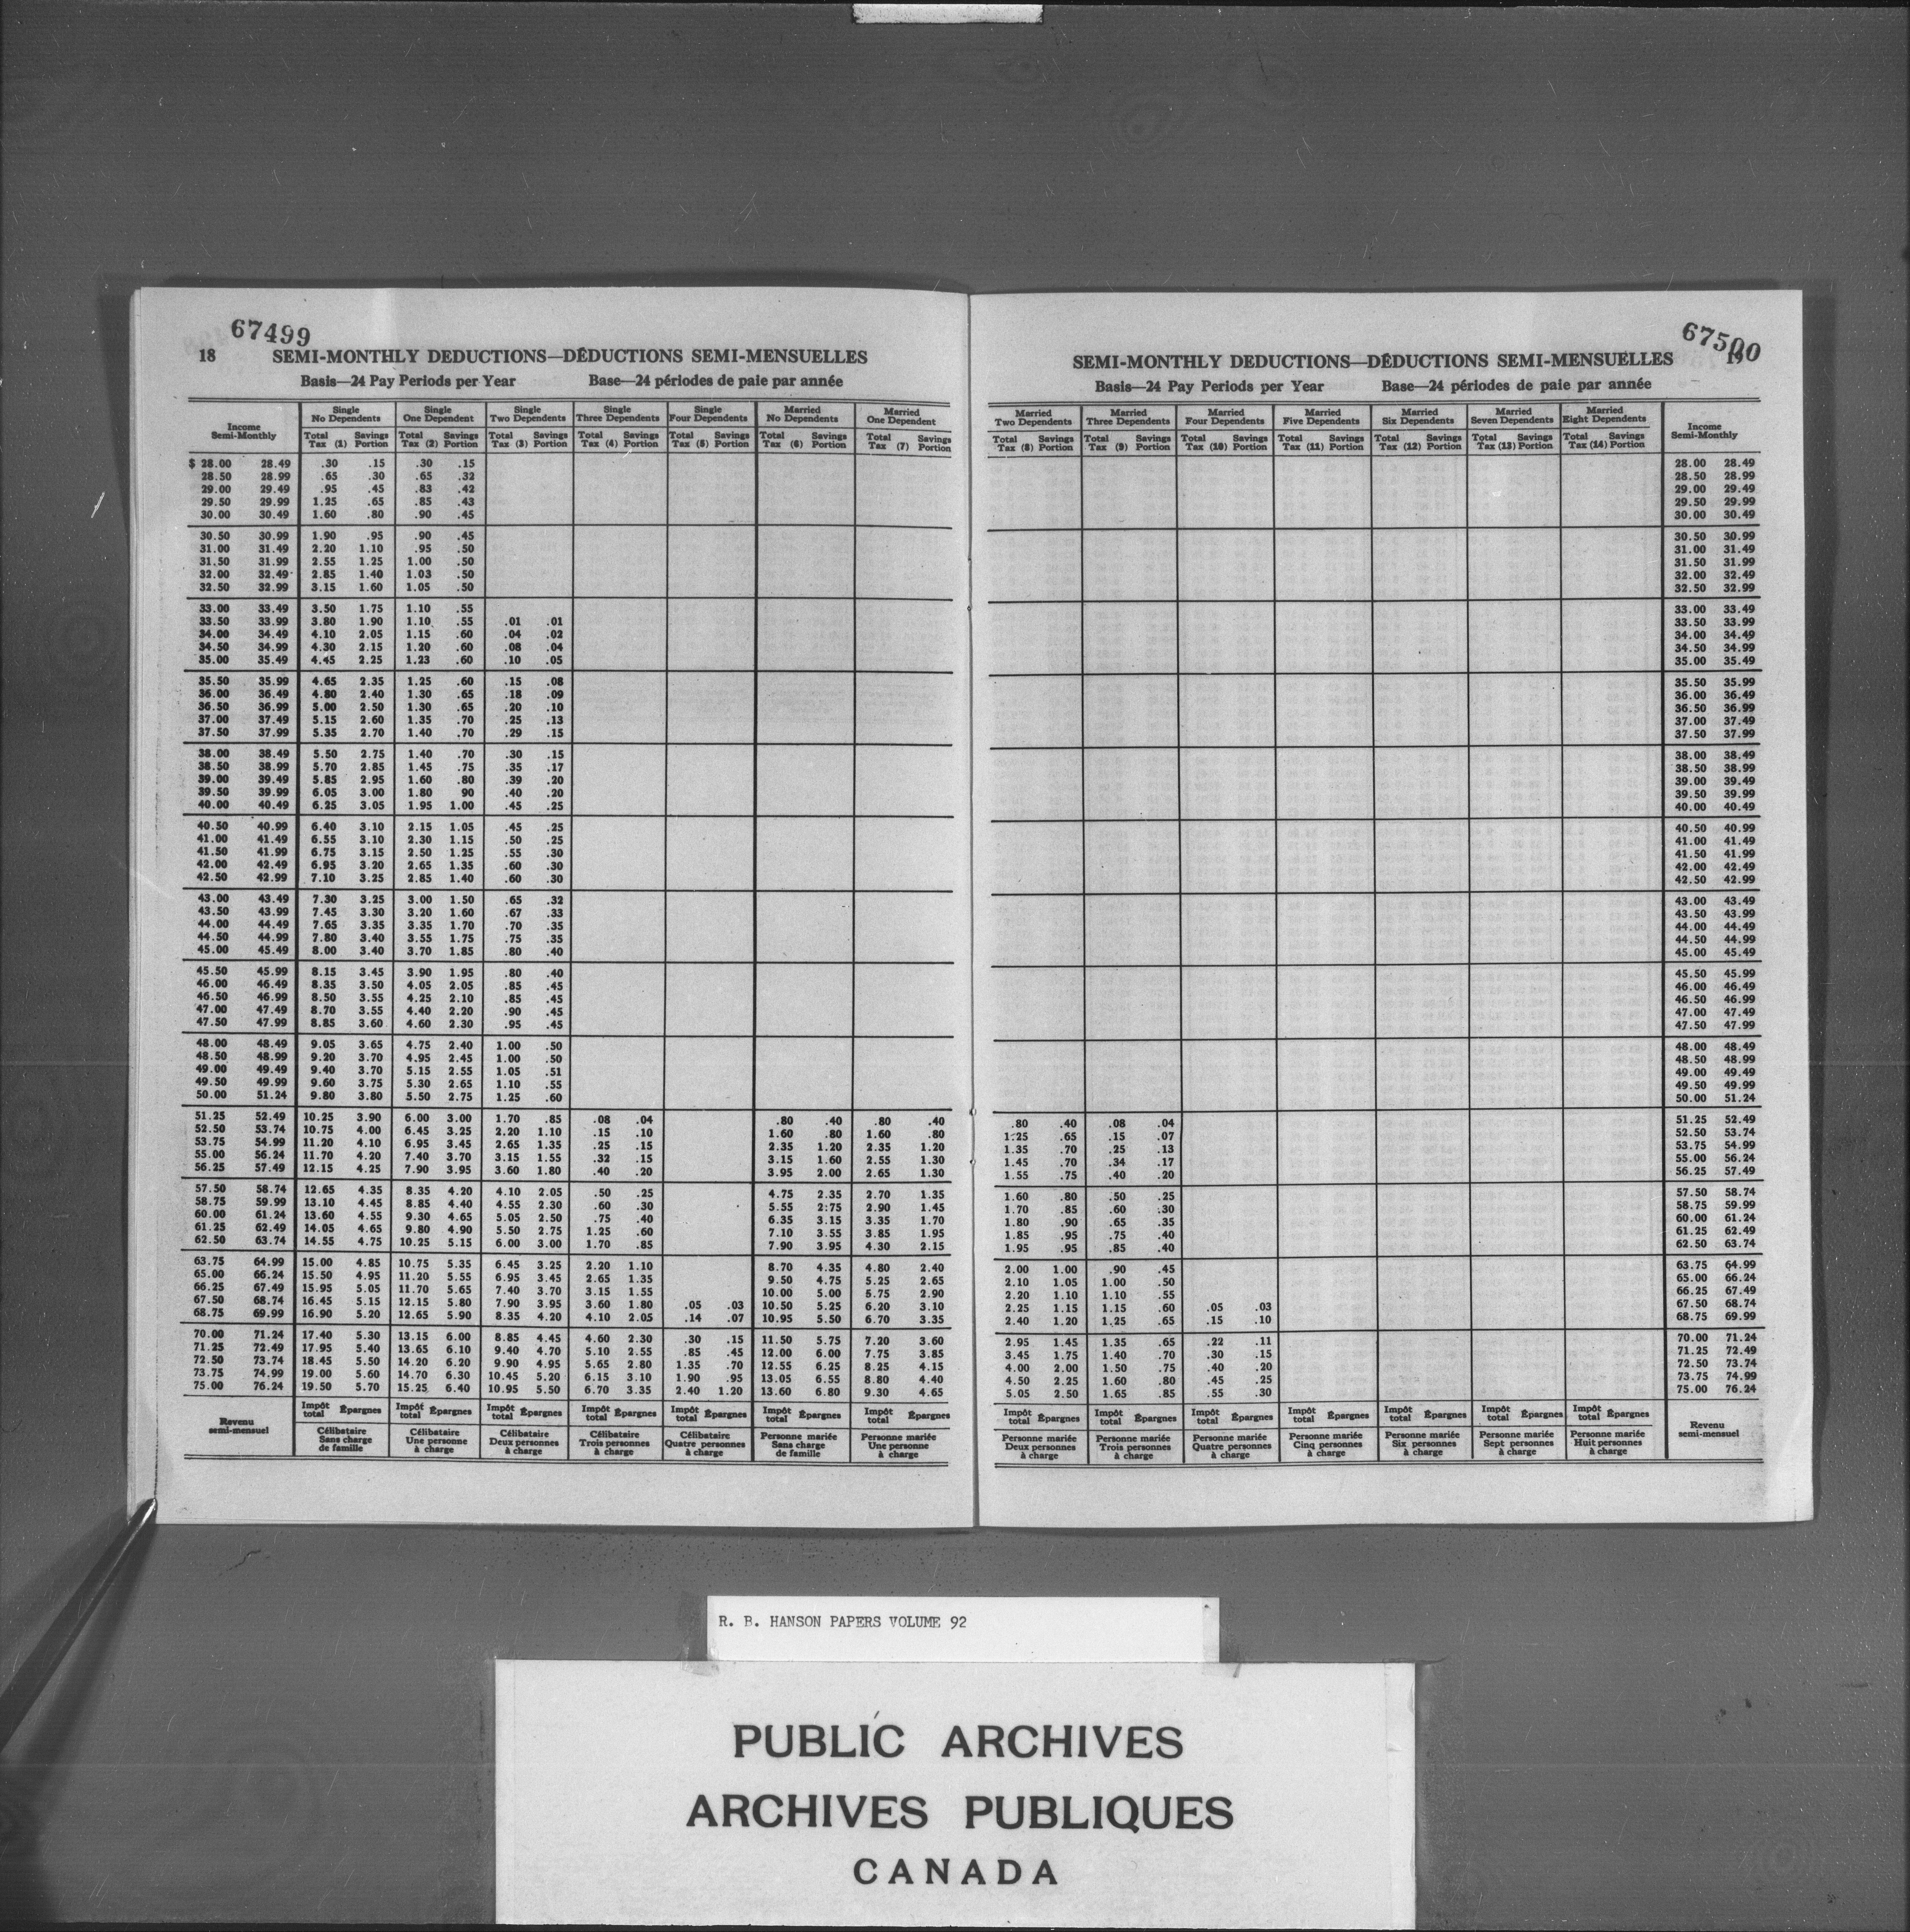 67499
18 SEMI-MONTHLY DEDUCTIONS—DÉDUCTIONS SEMI-MENSUELLES
Basis—24 Pay Periods per Year Base—24 périodes de paie par année
Income Semi-Monthly | Single No Dependents | Single One Dependent | Single Two Dependents | Single Three Dependents | Single Four Dependents | Married No Dependents | Married One Dependent
Total Tax (1) Savings Portion | Total Tax (2) Savings Portion | Total Tax (3) Savings Portion | Total Tax (4) Savings Portion | Total Tax (5) Savings Portion | Total Tax (6) Savings Portion | Total Tax (7) Savings Portion
$ 28.00 28.49 .30 .15 .30 .15
28.50 28.99 .65 .30 .65 .32
29.00 29.49 .95 .45 .83 .42
29.50 29.99 1.25 .65 .85 .43
30.00 30.49 1.60 .80 .90 .45
30.50 30.99 1.90 .95 .90 .45
31.00 31.49 2.20 1.10 .95 .50
31.50 31.99 2.55 1.25 1.00 .50
32.00 32.49 2.85 1.40 1.03 .50
32.50 32.99 3.15 1.60 1.05 .50
33.00 33.49 3.50 1.75 1.10 .55
33.50 33.99 3.80 1.90 1.10 .55 .01 .01
34.00 34.49 4.10 2.05 1.15 .60 .04 .02
34.50 34.99 4.30 2.15 1.20 .60 .08 .04
35.00 35.49 4.45 2.25 1.23 .60 .10 .05
35.50 35.99 4.65 2.35 1.25 .60 .15 .08
36.00 36.49 4.80 2.40 1.30 .65 .18 .09
36.50 36.99 5.00 2.50 1.30 .65 .20 .10
37.00 37.49 5.15 2.60 1.35 .70 .25 .13
37.50 37.99 5.35 2.70 1.40 .70 .29 .15
38.00 38.49 5.50 2.75 1.40 .70 .30 .15
38.50 38.99 5.70 2.85 1.45 .75 .35 .17
39.00 39.49 5.85 2.95 1.60 .80 .39 .20
39.50 39.99 6.05 3.00 1.80 90 .40 .20
40.00 40.49 6.25 3.05 1.95 1.00 .45 .25
40.50 40.99 6.40 3.10 2.15 1.05 .45 .25
41.00 41.49 6.55 3.10 2.30 1.15 .50 .25
41.50 41.99 6.75 3.15 2.50 1.25 .55 .30
42.00 42.49 6.95 3.20 2.65 1.35 .60 .30
42.50 42.99 7.10 3.25 2.85 1.40 .60 .30
43.00 43.49 7.30 3.25 3.00 1.50 .65 .32
43.50 43.99 7.45 3.30 3.20 1.60 .67 .33
44.00 44.49 7.65 3.35 3.35 1.70 .70 .35
44.50 44.99 7.80 3.40 3.55 1.75 .75 .35
45.00 45.49 8.00 3.40 3.70 1.85 .80 .40
45.50 45.99 8.15 3.45 3.90 1.95 .80 .40
46.00 46.49 8.35 3.50 4.05 2.05 .85 .45
46.50 46.99 8.50 3.55 4.25 2.10 .85 .45
47.00 47.49 8.70 3.55 4.40 2.20 .90 .45
47.50 47.99 8.85 3.60 4.60 2.30 .95 .45
48.00 48.49 9.05 3.65 4.75 2.40 1.00 .50
48.50 48.99 9.20 3.70 4.95 2.45 1.00 .50
49.00 49.49 9.40 3.70 5.15 2.55 1.05 .51
49.50 49.99 9.60 3.75 5.30 2.65 1.10 .55
50.00 51.24 9.80 3.80 5.50 2.75 1.25 .60
51.25 52.49 10.25 3.90 6.00 3.00 1.70 .85 .08 .04 .80 .40 .80 .40
52.50 53.74 10.75 4.00 6.45 3.25 2.20 1.10 .15 .10 1.60 .80 1.60 .80
53.75 54.99 11.20 4.10 6.95 3.45 2.65 1.35 .25 .15 2.35 1.20 2.35 1.20
55.00 56.24 11.70 4.20 7.40 3.70 3.15 1.55 .32 .15 3.15 1.60 2.55 1.30
56.25 57.49 12.15 4.25 7.90 3.95 3.60 1.80 .40 .20 3.95 2.00 2.65 1.30
57.50 58.74 12.65 4.35 8.35 4.20 4.10 2.05 .50 .25 4.75 2.35 2.70 1.35
58.75 59.99 13.10 4.45 8.85 4.40 4.55 2.30 .60 .30 5.55 2:75 2.90 1.45
60.00 61.24 13.60 4.55 9.30 4.65 5.05 2.50 .75 .40 6.35 3.15 3.35 1.70
61.25 62.49 14.05 4.65 9.80 4.90 5.50 2.75 1.25 .60 7.10 3.55 3.85 1.95
62.50 63.74 14.55 4.75 10.25 5.15 6.00 3.00 1.70 .85 7.90 3.95 4.30 2.15
63.75 64.99 15.00 4.85 10.75 5.35 6.45 3.25 2.20 1.10 8.70 4.35 4.80 2.40
65.00 66.24 15.50 4.95 11.20 5.55 6.95 3.45 2.65 1.35 9.50 4.75 5.25 2.65
66.25 67.49 15.95 5.05 11.70 5.65 7.40 3.70 3.15 1.55 10.00 5.00 5.75 2.90
67.50 68.74 16.45 5.15 12.15 5.80 7.90 3.95 3.60 1.80 .05 .03 10.50 5.25 6.20 3.10
68.75 69.99 16.90 5.20 12.65 5.90 8.35 4.20 4.10 2.05 .14 .07 10.95 5.50 6.70 3.35
70.00 71.24 17.40 5.30 13.15 6.00 8.85 4.45 4.60 2.30 .30 .15 11.50 5.75 7.20 3.60
71.25 72.49 17.95 5.40 13.65 6.10 9.40 4.70 5.10 2.55 .85 .45 12.00 6.00 7.75 3.85
72.50 73.74 18.45 5.50 14.20 6.20 9.90 4.95 5.65 2.80 1.35 .70 12.55 6.25 8.25 4.15
73.75 74.99 19.00 5.60 14.70 6.30 10.45 5.20 6.15 3.10 1.90 .95 13.05 6.55 8.80 4.40
75.00 76.24 19.50 5.70 15.25 6.40 10.95 5.50 6.70 3.35 2.40 1.20 13.60 6.80 9.30 4.65
Revenu semi-mensuel | Impôt total Épargnes | Impôt total Épargnes | Impôt total Épargnes | Impôt total Épargnes | Impôt total Épargnes | Impôt total Épargnes | Impôt total Épargnes
Célibataire Sans charge de famille | Célibataire Une personne à charge | Célibataire Deux personnes à charge | Célibataire Trois personnes à charge | Célibataire Quatre personnes à charge | Personne mariée Sans charge de famille | Personne mariée Une personne à charge
67500
SEMI-MONTHLY DEDUCTIONS—DÉDUCTIONS SEMI-MENSUELLES 19
Basis—24 Pay Periods per Year Base—24 périodes de paie par année
Married Two Dependents | Married Three Dependents | Married Four Dependents | Married Five Dependents | Married Six Dependents | Married Seven Dependents | Married Eight Dependents | Income Semi-Monthly
Total Tax (8) Savings Portion | Total Tax (9) Savings Portion | Total Tax (10) Savings Portion | Total Tax (11) Savings Portion | Total Tax (12) Savings Portion | Total Tax (13) Savings Portion | Total Tax (14) Savings Portion
28.00 28.49
28.50 28.99
29.00 29.49
29.50 29.99
30.00 30.49
30.50 30.99
31.00 31.49
31.50 31.99
32.00 32.49
32.50 32.99
33.00 33.49
33.50 33.99
34.00 34.49
34.50 34.99
35.00 35.49
35.50 35.99
36.00 36.49
36.50 36.99
37.00 37.49
37.50 37.99
38.00 38.49
38.50 38.99
39.00 39.49
39.50 39.99
40.00 40.49
40.50 40.99
41.00 41.49
41.50 41.99
42.00 42.49
42.50 42.99
43.00 43.49
43.50 43.99
44.00 44.49
44.50 44.99
45.00 45.49
45.50 45.99
46.00 46.49
46.50 46.99
47.00 47.49
47.50 47.99
48.00 48.49
48.50 48.99
49.00 49.49
49.50 49.99
50.00 51.24
.80 .40 .08 .04 51.25 52.49
1:25 .65 .15 .07 52.50 53.74
1.35 .70 .25 .13 53.75 54.99
1.45 .70 .34 .17 55.00 56.24
1.55 .75 .40 .20 56.25 57.49
1.60 .80 .50 .25 57.50 58.74
1.70 .85 .60 .30 58.75 59.99
1.80 .90 .65 .35 60.00 61.24
1.85 .95 .75 .40 61.25 62.49
1.95 .95 .85 .40 62.50 63.74
2.00 1.00 .90 .45 63.75 64.99
2.10 1.05 1.00 .50 65.00 66.24
2.20 1.10 1.10 .55 66.25 67.49
2.25 1.15 1.15 .60 .05 .03 67.50 68.74
2.40 1.20 1.25 .65 .15 .10 68.75 69.99
2.95 1.45 1.35 .65 .22 .11 70.00 71.24
3.45 1.75 1.40 .70 .30 .15 71.25 72.49
4.00 2.00 1.50 .75 .40 .20 72.50 73.74
4.50 2.25 1.60 .80 .45 .25 73.75 74.99
5.05 2.50 1.65 .85 .55 .30 75.00 76.24
Impôt total Épargnes | Impôt total Épargnes | Impôt total Épargnes | Impôt total Épargnes | Impôt total Épargnes | Impôt total Épargnes | Impôt total Épargnes | Revenu semi-mensuel
Personne mariée Deux personnes à charge | Personne mariée Trois personnes à charge | Personne mariée Quatre personnes à charge | Personne mariée Cinq personnes à charge | Personne mariée Six personnes à charge | Personne mariée Sept personnes à charge | Personne mariée Huit personnes à charge
R. B. HANSON PAPERS VOLUME 92
PUBLIC ARCHIVES
ARCHIVES PUBLIQUES
CANADA